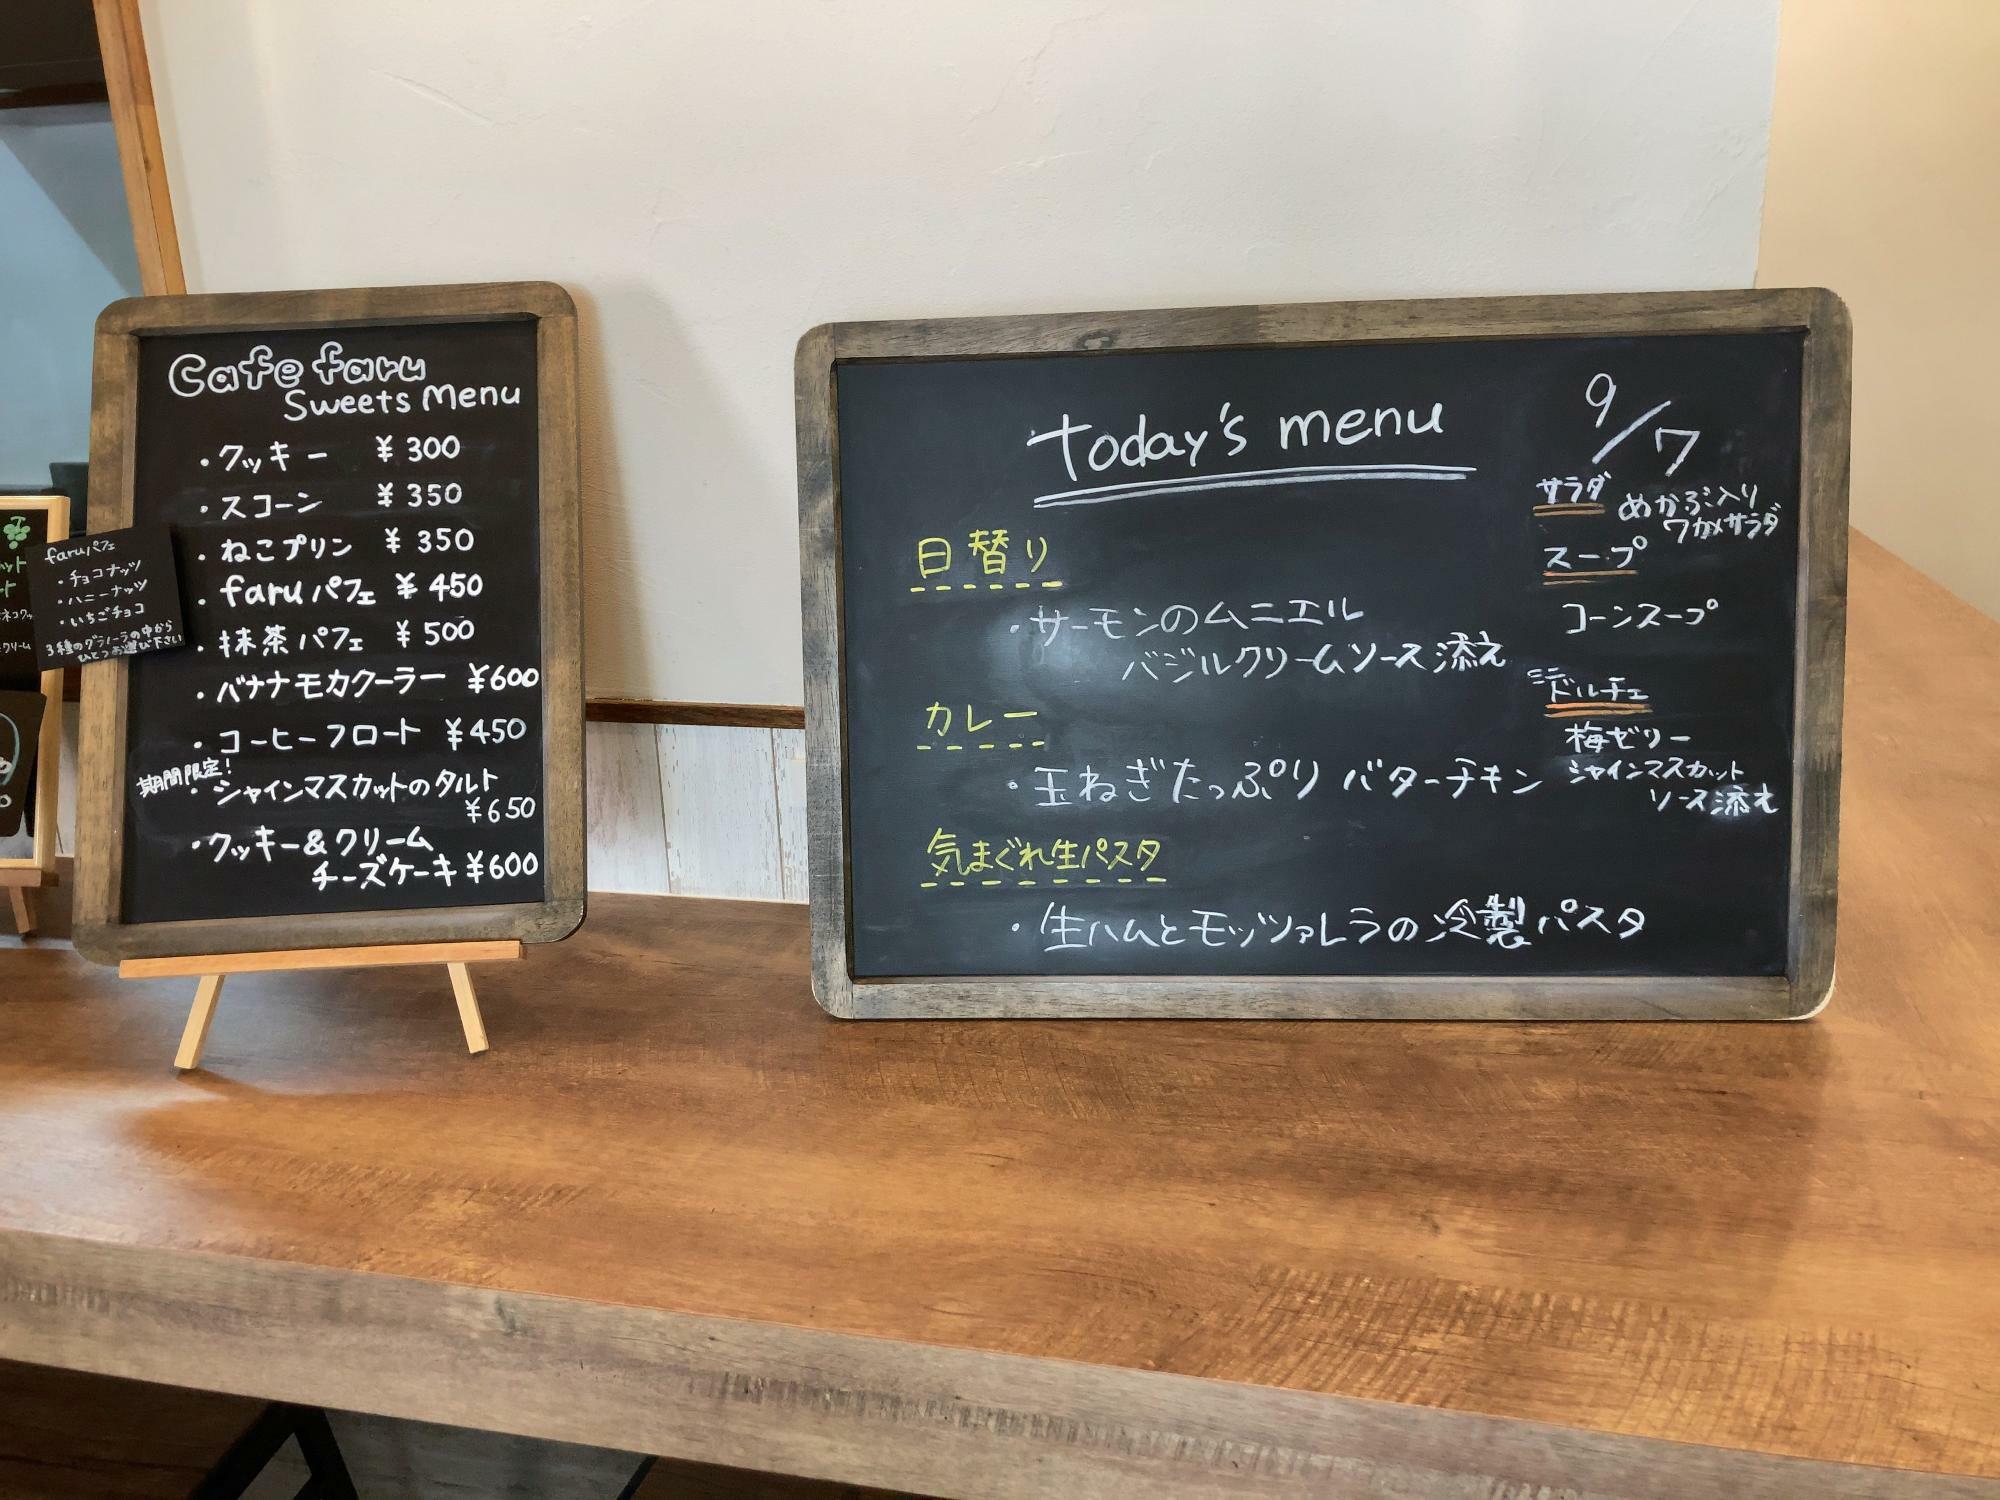 Cafe faru
Sweets Menu
・クッキー ¥300
・スコーン ¥350
・ねこプリン ¥350
・faruパフェ ¥450
・抹茶パフェ ¥500
・バナナモカクーラー ¥600
・コーヒーフロート ¥450
期間限定!
・シャインマスカットのタルト
¥650
・クッキー&クリーム
チーズケーキ ¥600
faruパフェ
・チョコナッツ
・ハニーナッツ
・いちごチョコ
3種のグラノーラの中から
ひとつお選び下さい
ット
ト
クリーム
today's menu
9/7
日替り
・サーモンのムニエル
バジルクリームソース添え
カレー
・玉ねぎたっぷり バターチキン
気まぐれ生パスタ
・生ハムとモッツァレラの冷製パスタ
サラダ
めかぶ入り
ワカメサラダ
スープ
コーンスープ
ドルチェ
梅ゼリー
シャインマスカット
ソース添え